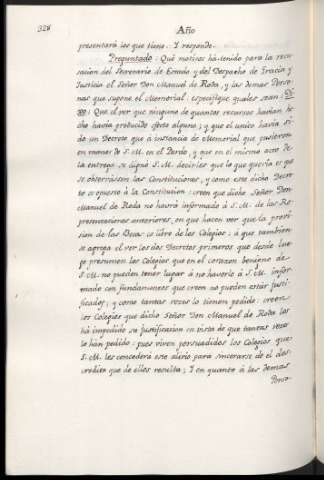 328 Año
presentará los que tiene. Y responde.
Preguntado: Qué motivos há tenido para la recu-
sacion del Secretario de Estado y del Despacho de Gracia y
Justicia el Señor Don Manuel de Roda, y las demas Perso-
nas que supone el Memorial: especifique quales sean: Di-
xo: Que el ver que ninguno de quantos recursos havian he-
cho havia producido efecto alguno; y que el unico havia si-
do un Decreto que á instancia de Memorial que pusieron
en manos de S. M. en el Pardo, y que en el mismo acto de
la entrega se dignó S. M. decirles que lo que quería es que
se observassen las Constituciones, y como este dicho Decre-
to es opuesto à la Constitucion: creen que dicho Señor Don
Manuel de Roda no havrà informado à S. M. de las Re-
presentaciones anteriores, en que hacen ver que la provi-
sion de las Becas es libre de los Colegios: à que tambien
se agrega el ver los dos Decretos primeros que desde lue-
go presumen los Colegios que en el corazon benigno de
S. M. no pueden tener lugar à no haverlo à S. M. infor-
mado con fundamentos que creen no pueden estàr justi-
ficados; y como tantas veces lo tienen pedido: creen
los Colegios que dicho Señor Don Manuel de Roda les
hà impedido su justificacion en vista de que tantas veces
lo hàn pedido: pues viven persuadidos los Colegios que
S. M. les concederà este alivio para sincerarse de el des-
credito que de ellos resulta; Y en quanto à las demas
Perso-